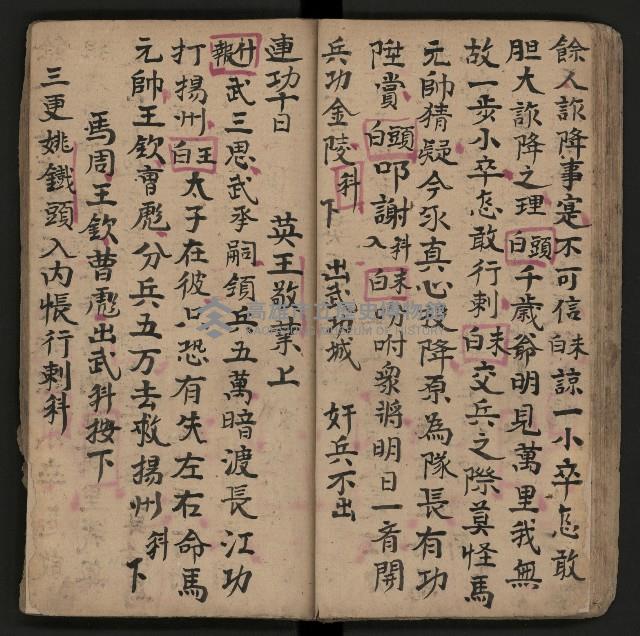 餘人詐降事寔不可信末白諒一小卒怎敢
胆大詐降之理頭白千歲爺明見萬里我無
故一步小卒怎敢行刺末白交兵之際莫怪馬
元帥猜疑今永真心投降原為隊長有功
陞賞頭白叩謝科入末白吩咐衆將明日一音開
兵功金陵科下 出武功城 奸兵不出
連功十日 英王敬業上
什報武三思武承嗣領兵五萬暗渡長江功
打揚州王白太子在彼只恐有失左右命馬
元帥王欽曹彪分兵五万去救揚州科下
馬周王欽曹彪出武科按下
三更姚鐵頭入內帳行刺科
高雄市立歷史博物館
KAOHSIUNG MUSEUM OF HISTORY